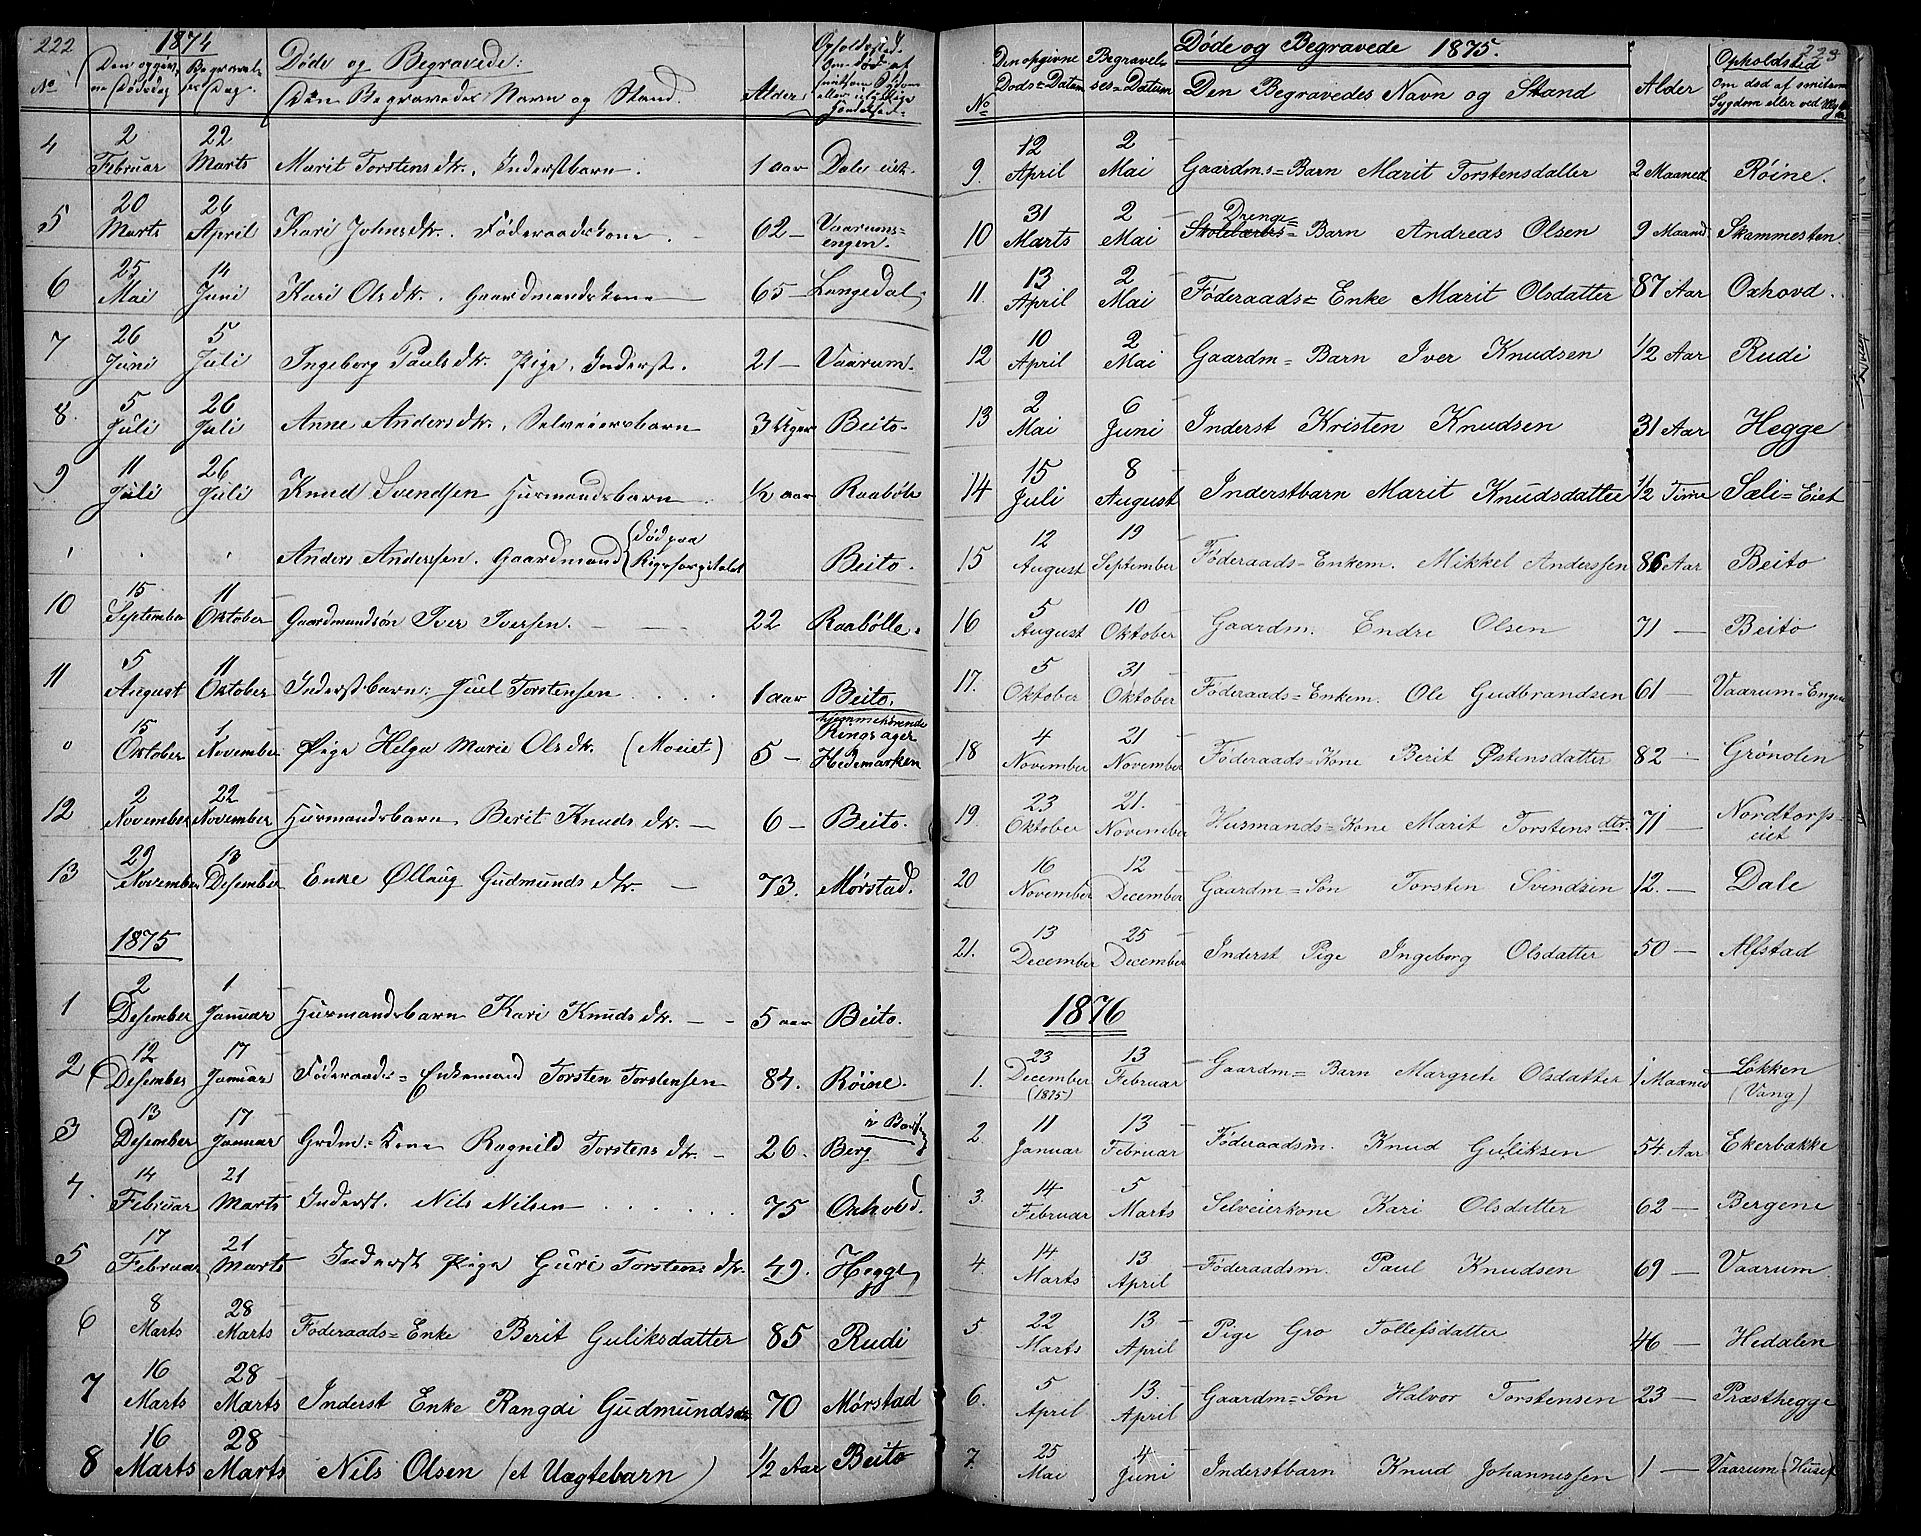 222
1874
Døde og Begravede:
No
Den Begravedes Navn og Stand.
Alder
4 2 Februar 22 Marts Marit Torstensdtr. Inderstbarn. 1 aar Dale eiet.
5 20 Marts 26 April Kari Johnsdtr. Føderaadskone. 62 — Vaarums=engen.
6 25 Mai 14 Juni Kari Olsdtr. Gaardmandskone 65 — Langedal
7 26 Juni 5 Juli Ingeborg Paulsdtr. Pige, Inderst. 21 — Vaarum.
8. 5 Juli 26 Juli Anne Andersdtr. Selveiersbarn 3 Uger Beito.
9 11 Juli 26 Juli Knud Svendsen Husmandsbarn. 1/2 aar Raabøle
Anders Anderssen. Gaardmand (død paa Rigshospitalet Beito.
10 15 September 11 Oktober Gaardmandsøn Iver Iversen. — 22 Raabølle.
11 5 August 11 Oktober Inderstbarn: Juul Torstensen 1 aar Beito.
15 Oktober 1 November Pige Helga Marie Olsdtr. (Moeiet) 5 — hjemmehørende Ringsager Hedemarken
12 2 November 22 November Husmandsbarn Berit Knudsdtr. — 6 — Beito.
13 29 November 13 Desember Enke Øllaug Gudmundsdtr. — 73. Mørstad.
1875
1 2 Desember 1 Januar Husmandsbarn Kari Knudsdtr. — — 5 aar Beito.
2 12 Desember 17 Januar Føderaads=Enkemand Torsten Torstensen 84. Røine.
3 13 Desember 17 Januar Grdm.=Kone Ragnild Torstensdtr. — 26. Berg
4. 14 Februar 21 Marts Inderst. Nils Nilsen 75 Oxhovd.
5 17 Februar 21 Marts Inderst Pige Guri Torstensdtr. 49. Hegge
6 8 Marts 28 Marts Føderaads=Enke Berit Guliksdatter 85 Rudi
7 16 Marts 28 Marts Inderst Enke Rangdi Gudmundsdtr 70 Mørstad
8 16 Marts 28 Marts Nils Olsen (et Uægtebarn) 1/2 Aar Beito
223
Døde og Begravede 1875.
No Den opgivne Døds=Datum Begravelses=Datum Den Begravedes Navn og Stand Alder Opholdsted
Om død af smitsom
Sygdom eller ved
9. 12 April 2 Mai Gaardm.s=Barn Marit Torstensdatter 2 Maaned Røine.
10 31 Marts 2 Mai Drenge=Barn Andreas Olsen 9 Maaned Skammesten.
11. 13 April 2 Mai Føderaads=Enke Marit Olsdatter 87 Aar Oxhovd.
12 10 April 2 Mai Gaardm=Barn Iver Knudsen 1/2 Aar Rudi
13 2 Mai 6 Juni Inderst Kristen Knudsen 31 Aar Hegge
14 15 Juli 8 August Inderstbarn Marit Knudsdatter 1/2 Time Sæli=Eiet
15 12 August 19 September Føderaads=Enkem. Mikkel Anderssen 86 Aar Beito
16 5 August 10 Oktober Gaardm. Endre Olsen 71 — Beito
17. 5 Oktober 31 Oktober Føderaads=Enkem. Ole Gudbrandsen 61 — Vaarum=Engen
18 4 November 21 November Føderaads=Kone Berit Østensdatter 82 — Grønolen
19. 23 Oktober 21. November Husmands=Kone Marit Torstensdtr. 71 — Nordtorps=eiet
20 16 November 12 December Gaardm=Søn Torsten Svendsen 12. — Dale
21. 13 December 25 December Inderst Pige Ingeborg Olsdatter 50 — Alfstad
1876
1. 23 December (1875) 13 Februar Gaardm=Barn Margrete Olsdatter 1 Maaned Løkken (Vang)
2. 11 Januar 13 Februar Føderaadsm. Knud Guliksen 54 Aar Ekerbakke
3. 14 Februar 5 Marts Selveierkone Kari Olsdatter 62 — Bergene
4. 14 Marts 13 April Føderaadsm. Paul Knudsen 69 — Vaarum
5 22 Marts 13 April Pige Gro Tollefsdatter 46 — Hedalen
6. 5 April 13. April Gaardm=Søn Halvor Torstensen 23 — Præsthegge
7. 25 Mai 4 Juni Inderstbarn Knud Johannessen 1 — Vaarum=(Huset)